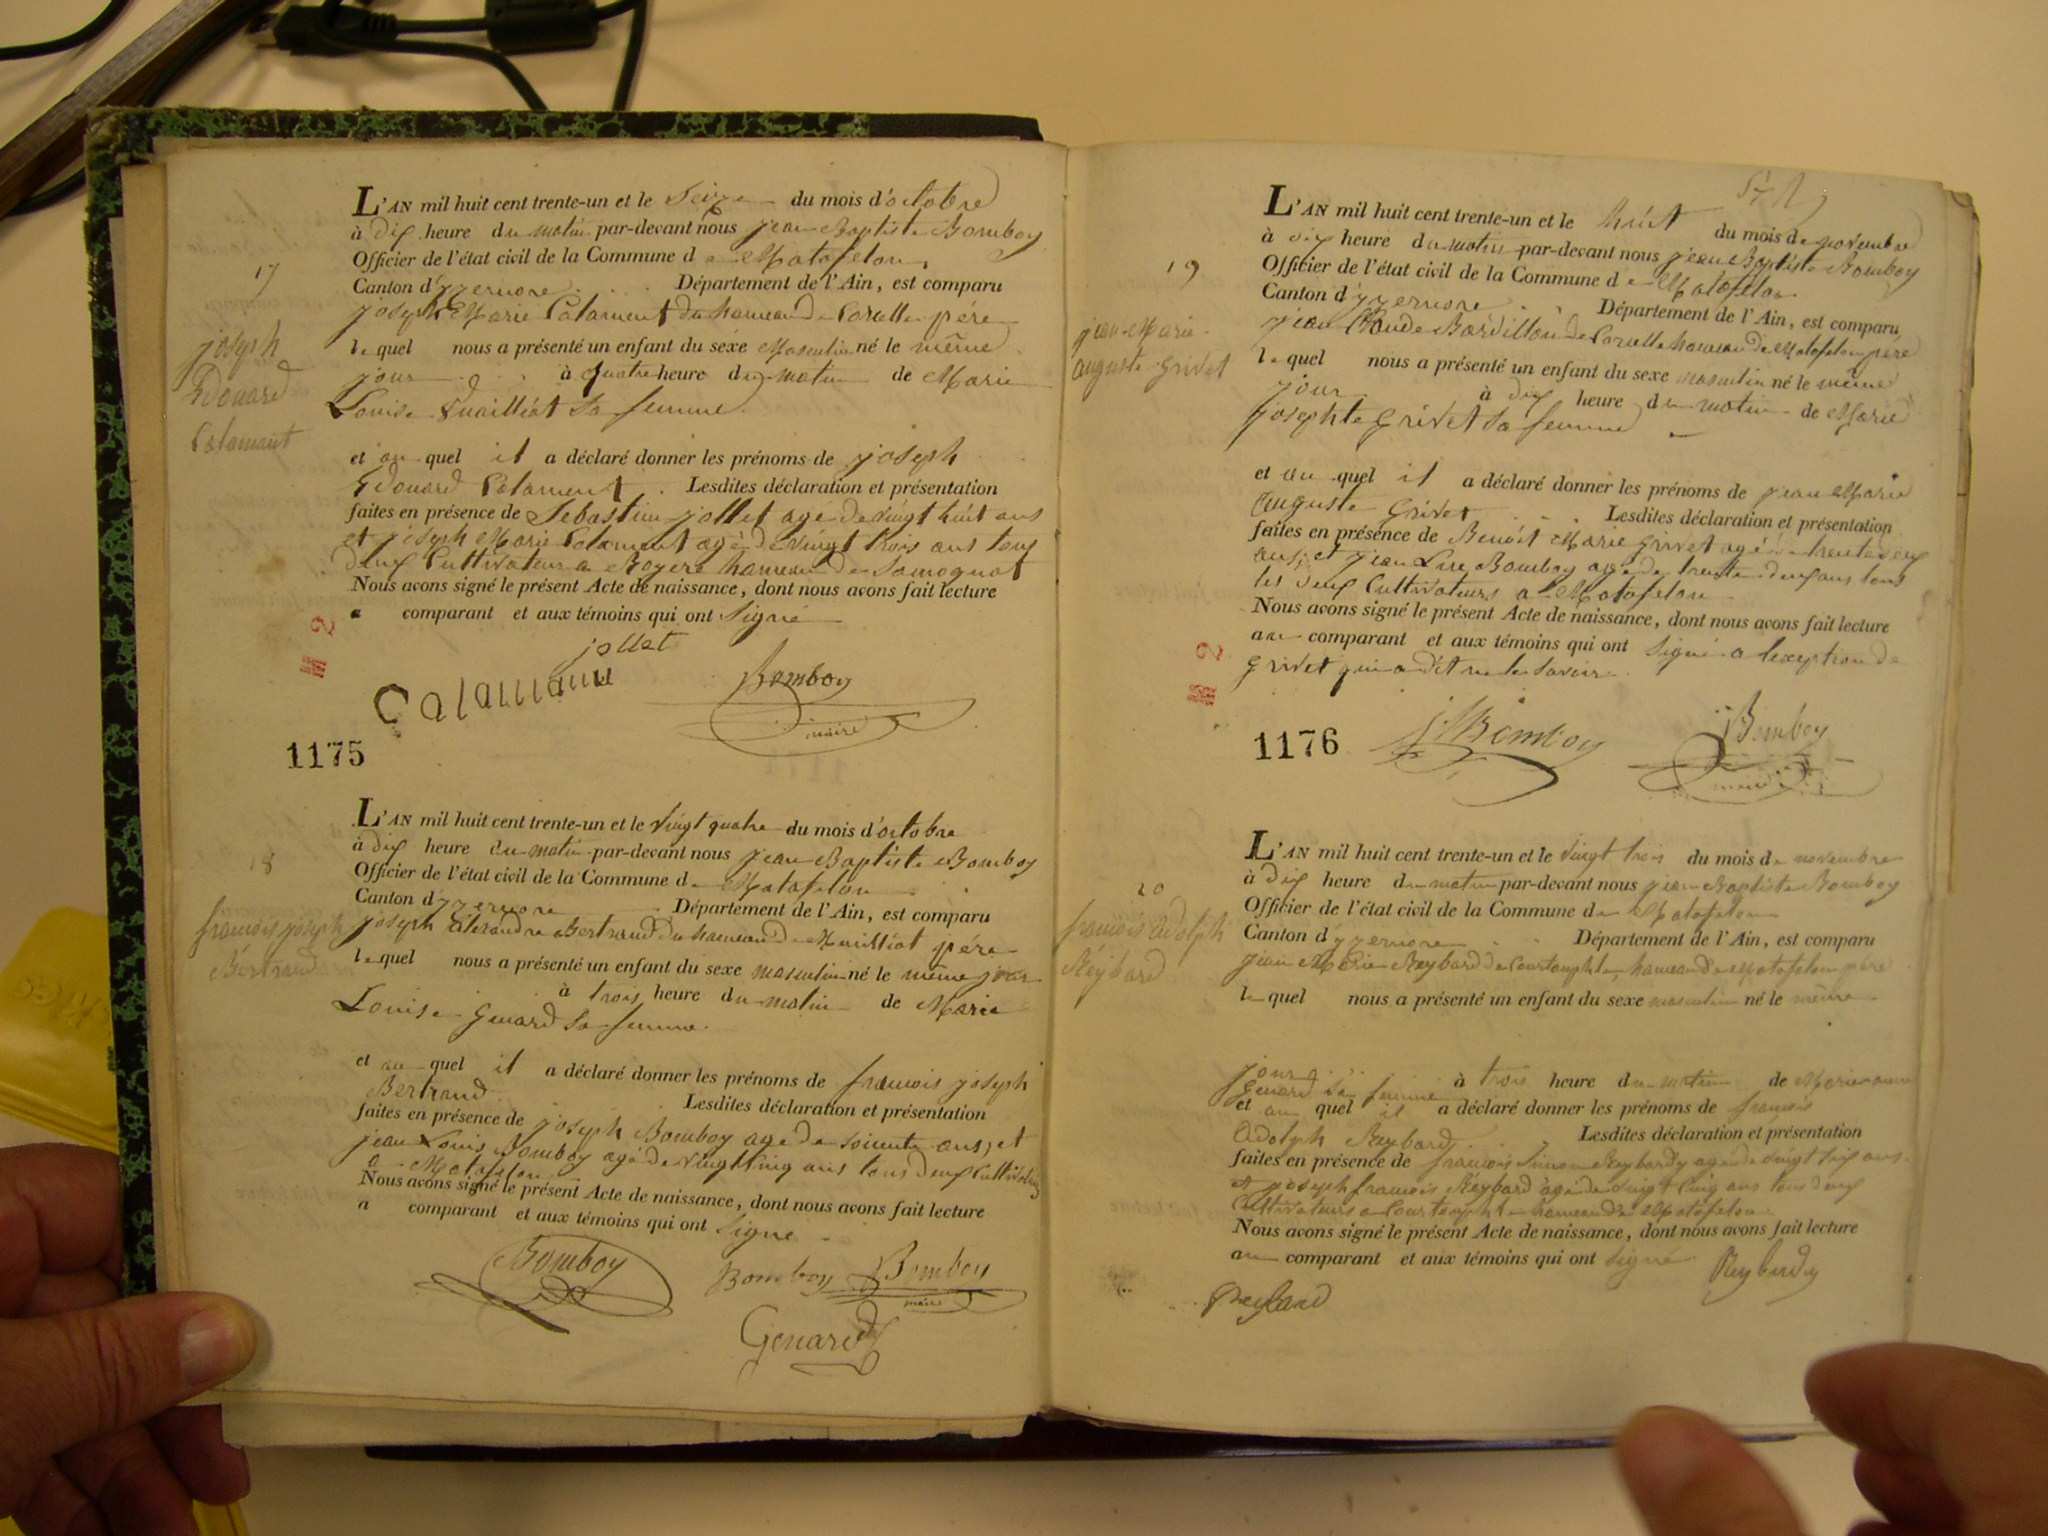 17
joseph
Edouard
Calament
L'AN mil huit cent trente-un et le Seize du mois d'octobre
à dix heure du matin par-devant nous jean Baptiste Bomboy
Officier de l'état civil de la Commune de Matafelon
Canton d'yzernore Département de l'Ain, est comparu
joseph Marie Calament du hameau de Corcelle père
lequel nous a présenté un enfant du sexe Masculin né le même
jour à quatre heure du matin de Marie
Louise sa femme
et au quel il a déclaré donner les prénoms de joseph
Edouard Calament . Lesdites déclaration et présentation
faites en présence de Sebastien jollet age de vingt huit ans
et joseph Marie Calament agé de vingt trois ans tous
deux Cultivateurs a hameau de Samognat
Nous avons signé le présent Acte de naissance, dont nous avons fait lecture
a comparant et aux témoins qui ont Signé
jollet
Bomboy
maire
1175
18
francois joseph
Bertrand
L'AN mil huit cent trente-un et le vingt quatre du mois d'octobre
à dix heure du matin par-devant nous jean Baptiste Bomboy
Officier de l'état civil de la Commune de Matafelon
Canton d'yzernore Département de l'Ain, est comparu
joseph Alexandre Bertrand du hameau de père
lequel nous a présenté un enfant du sexe masculin né le même jour
à trois heure du matin de Marie
Louise Genard sa femme
et au quel il a déclaré donner les prénoms de francois joseph
Bertrand Lesdites déclaration et présentation
faites en présence de joseph Bomboy age de soixante ans, et
jean Louis Bomboy agé de vingt cinq ans tous deux Cultivateurs
a Matafelon
Nous avons signé le présent Acte de naissance, dont nous avons fait lecture
a comparant et aux témoins qui ont Signé
Bomboy
Bomboy Bomboy
maire
Genard
19
jean Marie
auguste Grivet
L'AN mil huit cent trente-un et le huit du mois de novembre
à dix heure du matin par-devant nous jean Baptiste Bomboy
Officier de l'état civil de la Commune de Matafelon
Canton d'yzernore Département de l'Ain, est comparu
jean Claude de Corcelle hameau de Matafelon père
lequel nous a présenté un enfant du sexe masculin né le même
jour à dix heure du matin de Marie
josephte Grivet sa femme
et au quel il a déclaré donner les prénoms de jean Marie
auguste Grivet Lesdites déclaration et présentation
faites en présence de Benoit Marie Grivet agé de trente deux
ans, et jean Bomboy age de trente deux ans tous
les deux Cultivateurs a Matafelon
Nous avons signé le présent Acte de naissance, dont nous avons fait lecture
au comparant et aux témoins qui ont Signé a lexception de
Grivet qui a dit ne le savoir
1176
Bomboy
Bomboy
maire
20
francois adolph
Reybard
L'AN mil huit cent trente-un et le vingt trois du mois de novembre
à dix heure du matin par-devant nous jean Baptiste Bomboy
Officier de l'état civil de la Commune de Matafelon
Canton d'yzernore Département de l'Ain, est comparu
jean Marie Reybard de hameau de Matafelon père
lequel nous a présenté un enfant du sexe masculin né le même
jour à trois heure du matin de Marie
Genard sa femme
et au quel il a déclaré donner les prénoms de francois
Adolph Reybard Lesdites déclaration et présentation
faites en présence de francois Simon Reybardy age de vingt six ans
et joseph francois Reybard agé de vingt cinq ans tous deux
Cultivateurs a hameau de Matafelon
Nous avons signé le présent Acte de naissance, dont nous avons fait lecture
au comparant et aux témoins qui ont signé